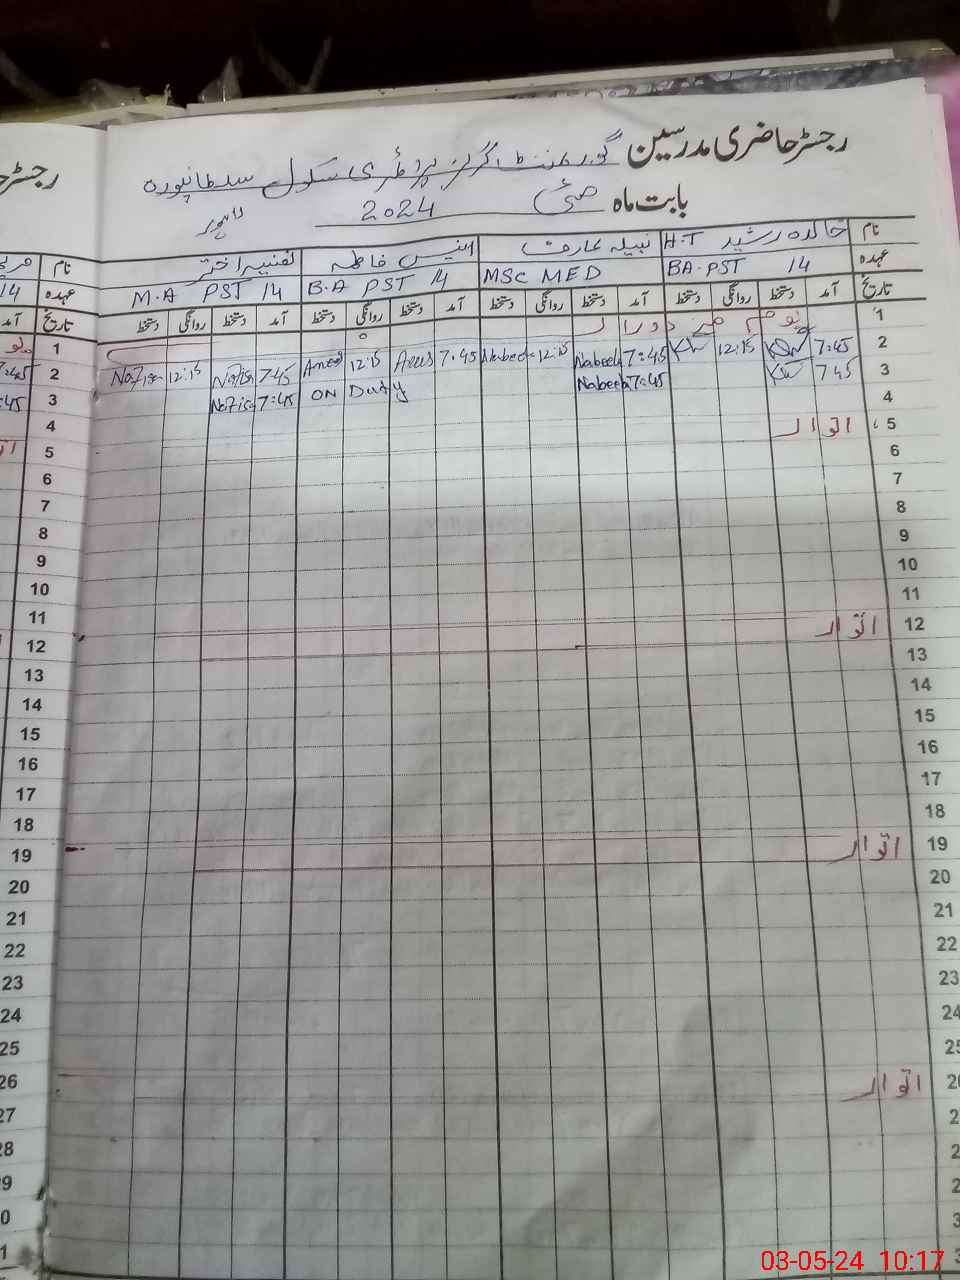 رجسٹر حاضری مدرسین گورنمنٹ گرلز پرائمری سکول سلطانپورہ
بابت ماہ مئی 2024 لاہور
نام خالدہ رشید H.T نبیلہ عارف انیس فاطمہ نفیسہ اختر نام
عہدہ BA. PST 14 MSc MED B.A PST 14 M.A PST 14 عہدہ 14
تاریخ آمد دستخط روانگی دستخط آمد دستخط روانگی دستخط آمد دستخط روانگی دستخط آمد دستخط روانگی دستخط تاریخ آمد
1 یوم مزدوراں 1
2 7:45 12:15 7:45 Nabeela 12:15 Nabeel 7:45 Anees 12:15 Anees 7:45 Nafisa 12:15 Nafisa 2 7:45
3 7 45 7:45 Nabeela ON Duty 7:45 Nafisa 3 :45
4 4
5 اتوار 5
6 6
7 7
8 8
9 9
10 10
11 11
12 اتوار 12
13 13
14 14
15 15
16 16
17 17
18 18
19 اتوار 19
20 20
21 21
22 22
23 23
24 24
25 25
26 اتوار 26
27
28
03-05-24 10:17